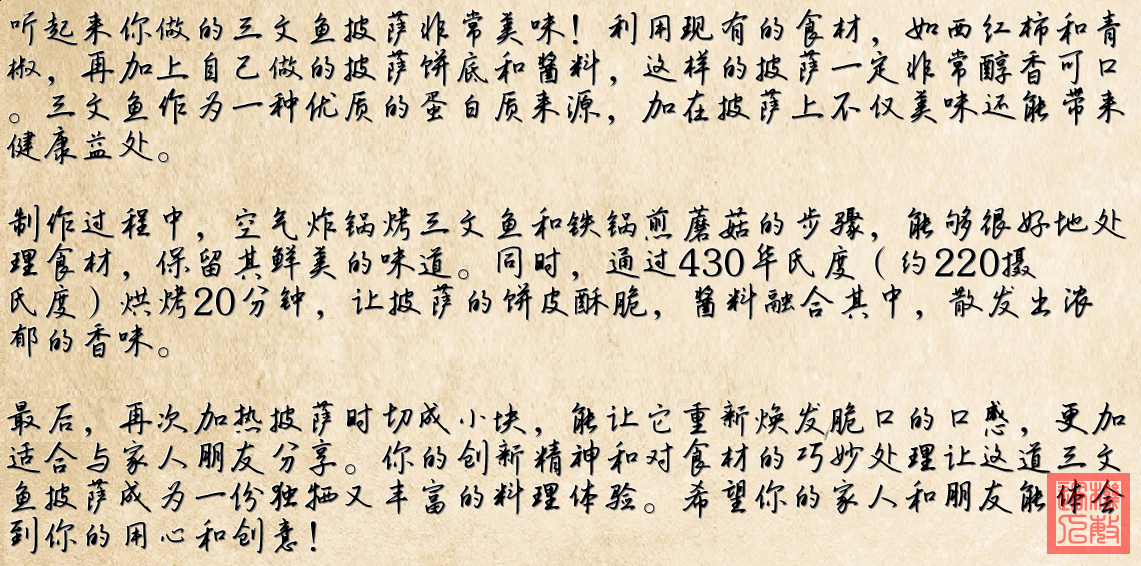 听起来你做的三文鱼披萨非常美味！利用现有的食材，如西红柿和青
椒，再加上自己做的披萨饼底和酱料，这样的披萨一定非常醇香可口
。三文鱼作为一种优质的蛋白质来源，加在披萨上不仅美味还能带来
健康益处。
制作过程中，空气炸锅烤三文鱼和铁锅煎蘑菇的步骤，能够很好地处
理食材，保留其鲜美的味道。同时，通过430华氏度（约220摄
氏度）烘烤20分钟，让披萨的饼皮酥脆，酱料融合其中，散发出浓
郁的香味。
最后，再次加热披萨时切成小块，能让它重新焕发脆口的口感，更加
适合与家人朋友分享。你的创新精神和对食材的巧妙处理让这道三文
鱼披萨成为一份独特又丰富的料理体验。希望你的家人和朋友能体会
到你的用心和创意！